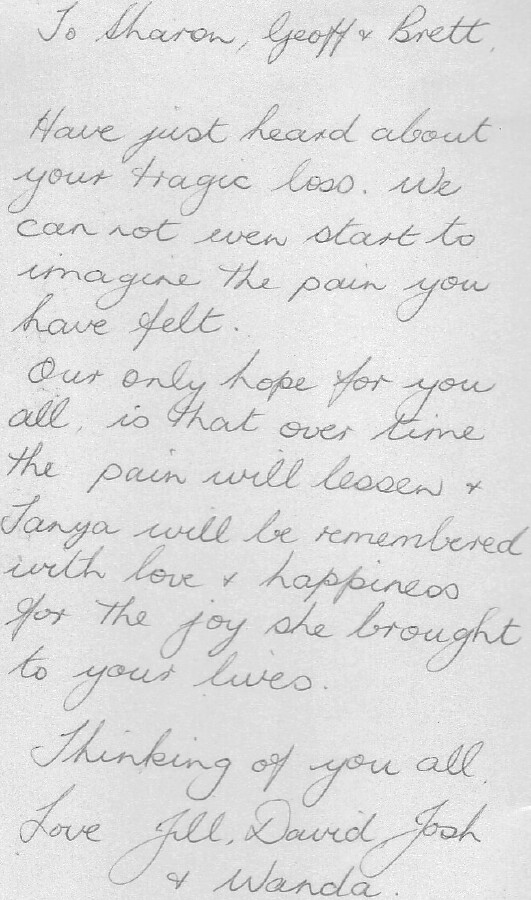 To Sharon, Geoff & Brett.
Have just heard about
your tragic loss. We
can not even start to
imagine the pain you
have felt.
Our only hope for you
all, is that over time
the pain will lessen &
Tanya will be remembered
with love & happiness
for the joy she brought
to your lives.
Thinking of you all.
Love Jill, David, Josh
& Wanda.